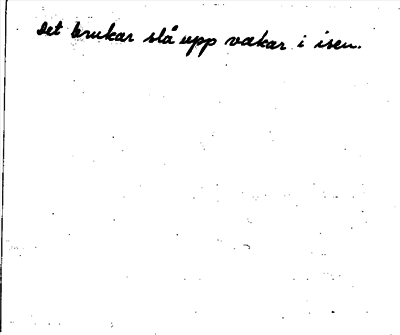 Det brukar slå upp vakar i isen.